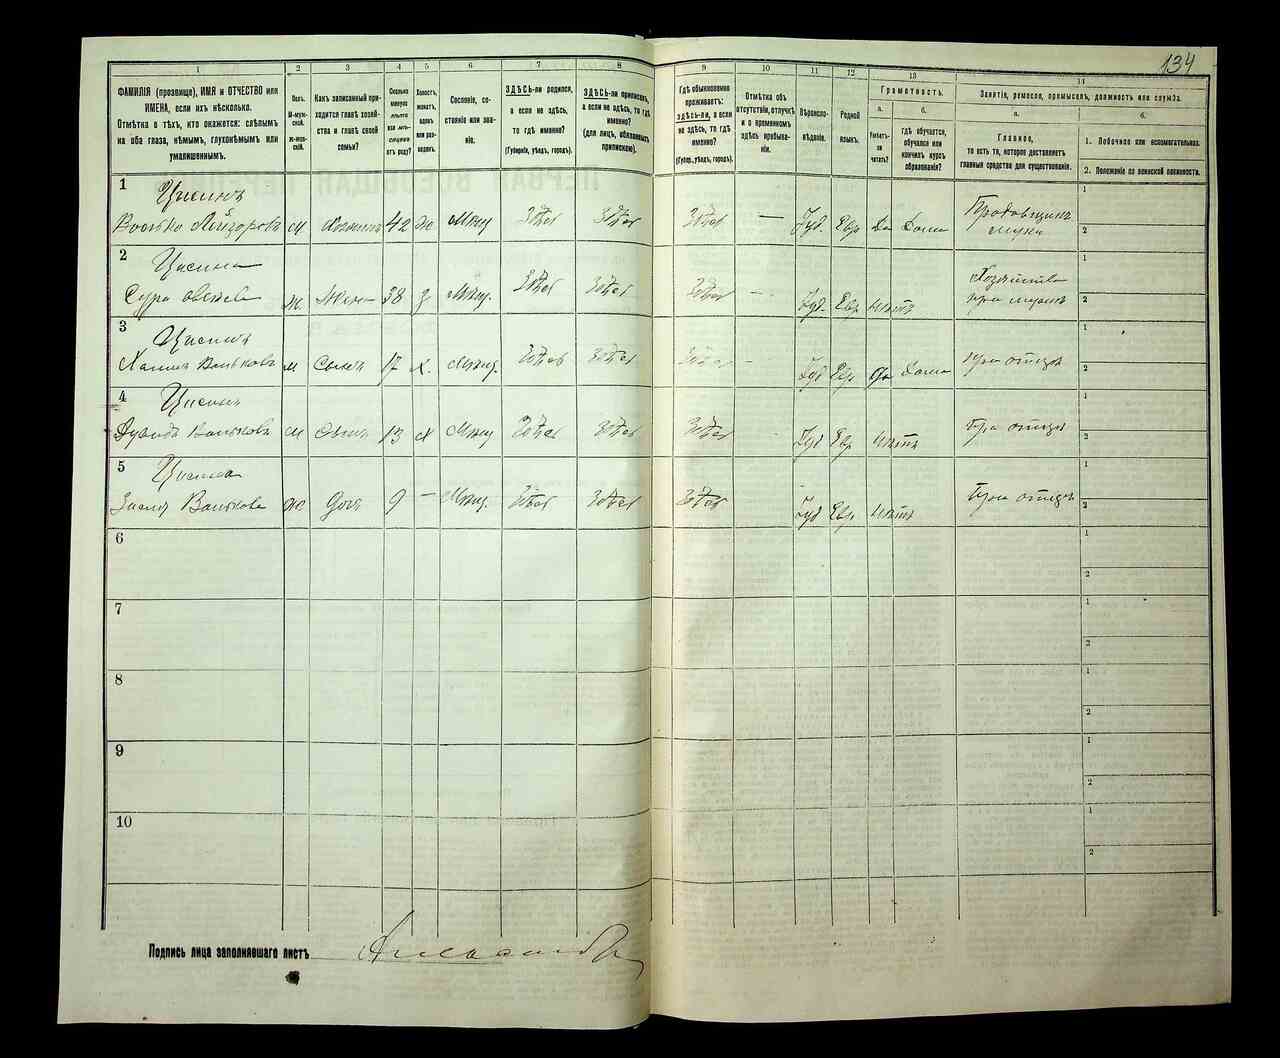 134
1
2
3
4
5
6
7
8
9
10
11
12
13
14
ФАМИЛІЯ (прозвище), ИМЯ и ОТЧЕСТВО или
ИМЕНА, если ихъ нѣсколько.
Отмѣтка о тѣхъ, кто окажется: слѣпымъ
на оба глаза, нѣмымъ, глухонѣмымъ или
умалишеннымъ.
Полъ.
М-муж-
ской.
Ж-жен-
скій.
Какъ записанный при-
ходится главѣ хозяй-
ства и главѣ своей
семьи?
Сколько
минуло
лѣтъ
или мѣ-
сяцевъ
отъ роду?
Холостъ,
женатъ,
вдовъ
или раз-
веденъ.
Сословіе, со-
стояніе или зва-
ніе.
ЗДѢСЬ-ли родился,
а если не здѣсь,
то гдѣ именно?
(Губернія, уѣздъ, городъ).
ЗДѢСЬ-ли приписанъ,
а если не здѣсь, то гдѣ
именно?
(для лицъ, обязанныхъ
припискою).
Гдѣ обыкновенно
проживаетъ:
ЗДѢСЬ-ли, а если
не здѣсь, то гдѣ
именно?
(Губер., уѣздъ, городъ).
Отмѣтка объ
отсутствіи, отлучкѣ
и о временномъ
здѣсь пребыва-
ніи.
Вѣроиспо-
вѣданіе.
Родной
языкъ.
Грамотность.
а.
Умѣетъ-
ли
читать?
б.
Гдѣ обучается,
обучался или
кончилъ курсъ
образованія?
Занятіе, ремесло, промыселъ, должность или служба.
а.
Главное,
то есть то, которое доставляетъ
главныя средства для существованія.
б.
1. Побочное или вспомогательное.
2. Положеніе по воинской повинности.
1
Цисинъ
М 42 Мѣщ Здѣсь Здѣсь Здѣсь — Іуд. Евр Да Дома
1
2
2
Цисина
Сура Ж. Жена 38 З Мѣщ. Здѣсь Здѣсь Здѣсь Іуд. Евр Нѣтъ
1
2
3
Цисинъ
М Сынъ 17 Х. Мѣщ. Здѣсь Здѣсь Здѣсь — Іуд Евр Да Дома При отцѣ
1
2
4
Цисинъ
М Сынъ 13 Х Мѣщ Здѣсь Здѣсь Здѣсь Іуд Евр Нѣтъ При отцѣ
1
2
5
Цисина
Ж Дочь 9 — Мѣщ. Здѣсь Здѣсь Здѣсь Іуд Евр. Нѣтъ При отцѣ
1
2
6
1
2
7
1
2
8
1
2
9
1
2
10
1
2
Подпись лица заполнявшаго листъ